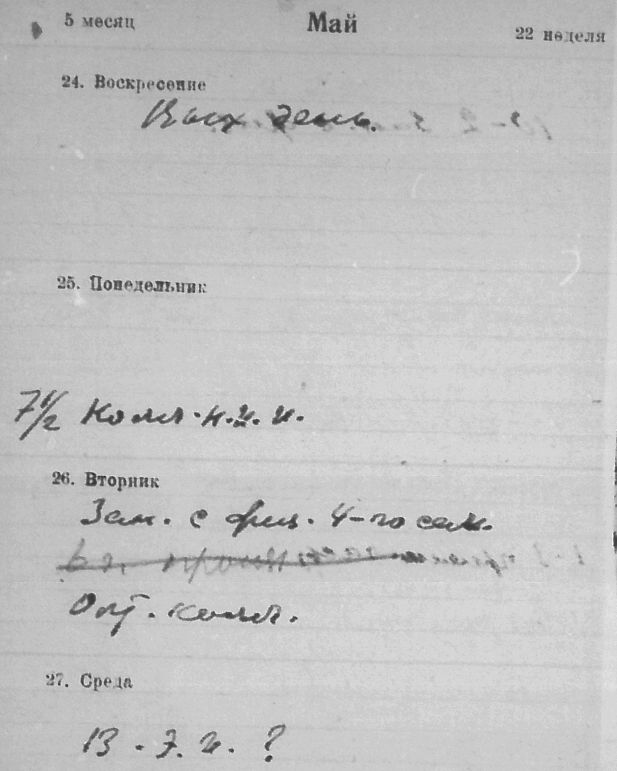 5 месяц Май 22 неделя
24. Воскресение
Вых день.
25. Понедельник
7 1/2 Колл. н.и.и.
26. Вторник
Зам. с физ. 4-го сем.
колл.
27. Среда
В. Э. И. ?